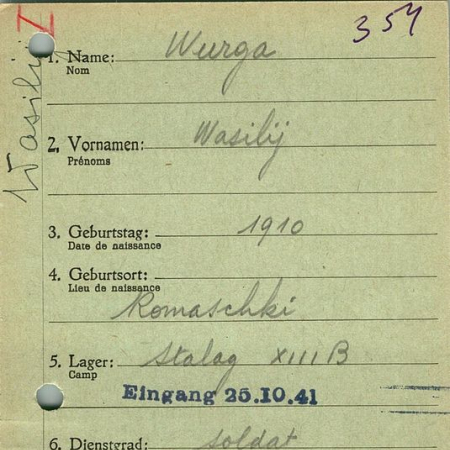 354
I
Wasilij
1. Name: Wurga
Nom
2. Vornamen: Wasilij
Prénoms
3. Geburtstag: 1910
Date de naissance
4. Geburtsort:
Lieu de naissance
Romaschki
5. Lager: Stalag XIII B
Camp
Eingang 25.10.41
6. Dienstgrad: Soldat